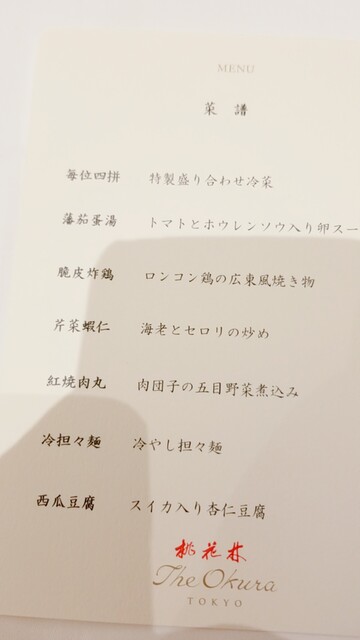 MENU
菜 譜
毎位四拼 特製盛り合わせ冷菜
蕃茄蛋湯 トマトとホウレンソウ入り卵スー
脆皮炸鶏 ロンコン鶏の広東風焼き物
芹菜蝦仁 海老とセロリの炒め
紅焼肉丸 肉団子の五目野菜煮込み
冷担々麺 冷やし担々麺
西瓜豆腐 スイカ入り杏仁豆腐
桃花林
The Okura
TOKYO